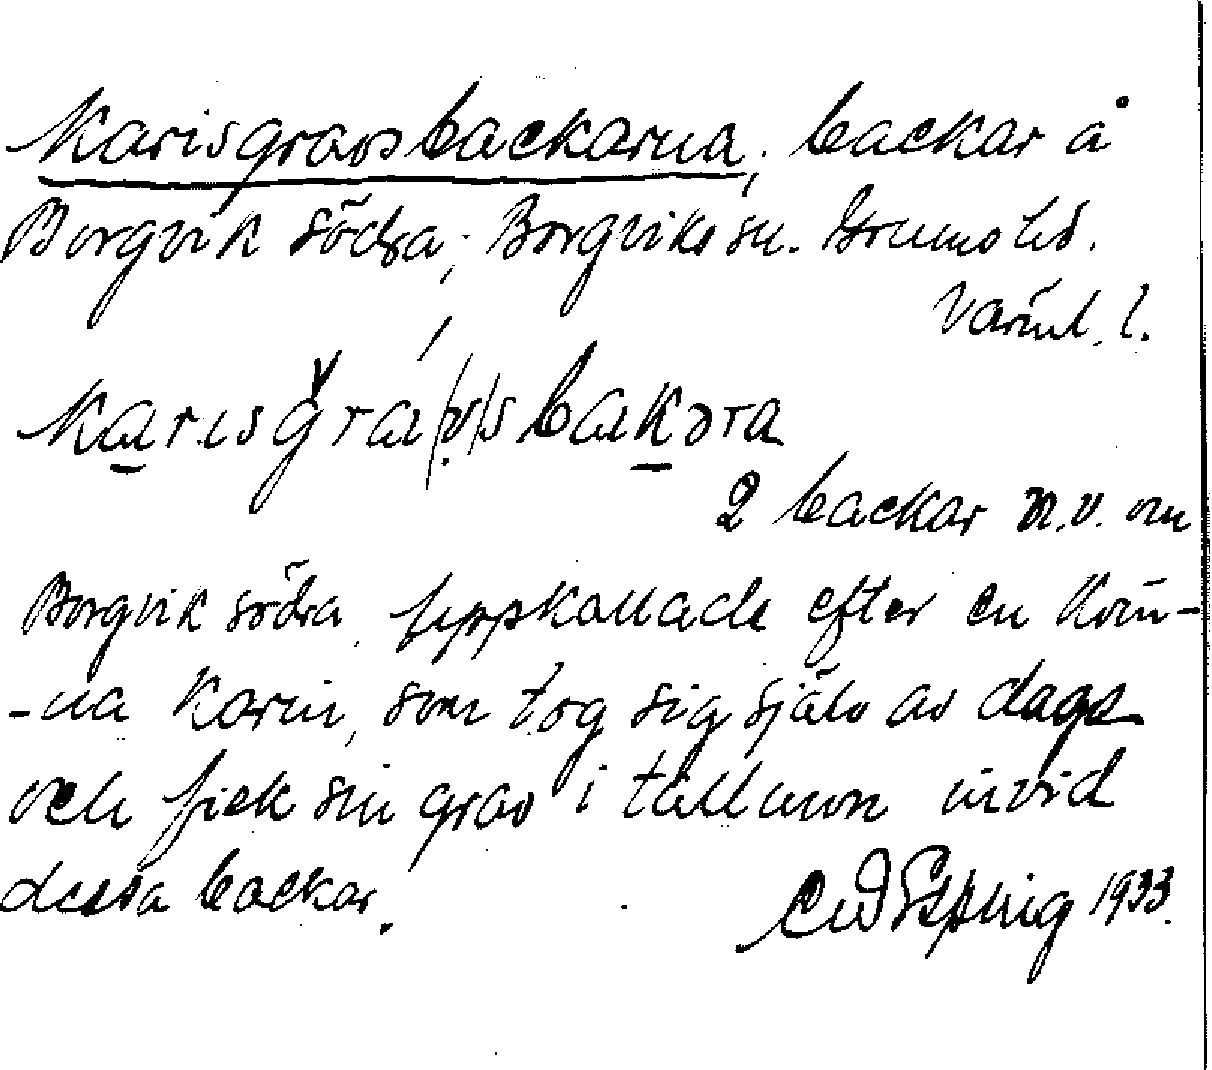 Karisgravsbackarna, backar å
Borgvik södra, Borgviks sn. Grums hd.
Värml. l.
karisgra(v)sbakəra
2 backar n.v. om
Borgvik södra, uppkallade efter en kvin-
-na Karin, som tog sig själv av daga
och fick sin grav i tallmon invid
dessa backar.
Esping 1933.